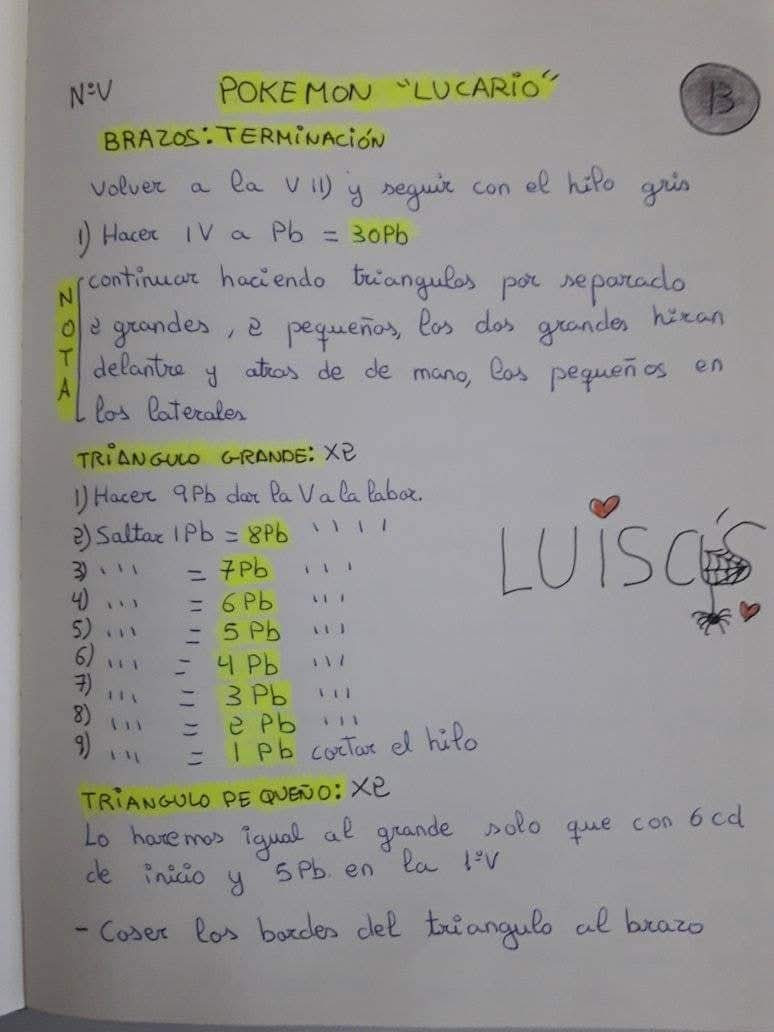 NºV POKEMON "LUCARIO" 13
BRAZOS: TERMINACIÓN
Volver a la V 11) y seguir con el hilo gris
1) Hacer 1V a Pb = 30Pb
NOTA
continuar haciendo triangulos por separado
2 grandes, 2 pequeños, los dos grandes hiran
delantre y atras de de mano, los pequeños en
los laterales
TRIANGULO GRANDE: X2
1) Hacer 9Pb dar la V a la labor.
2) Saltar 1Pb = 8Pb ' ' ' '
3) ' ' ' = 7Pb ' ' '
4) ' ' ' = 6Pb ' ' '
5) ' ' ' = 5Pb ' ' '
6) ' ' ' = 4Pb ' ' '
7) ' ' ' = 3Pb ' ' '
8) ' ' ' = 2Pb ' ' '
9) ' ' ' = 1Pb cortar el hilo
LUISA'S
TRIANGULO PEQUEÑO: X2
Lo haremos igual al grande solo que con 6cd
de inicio y 5Pb. en la 1ºV
- Coser los bordes del triangulo al brazo